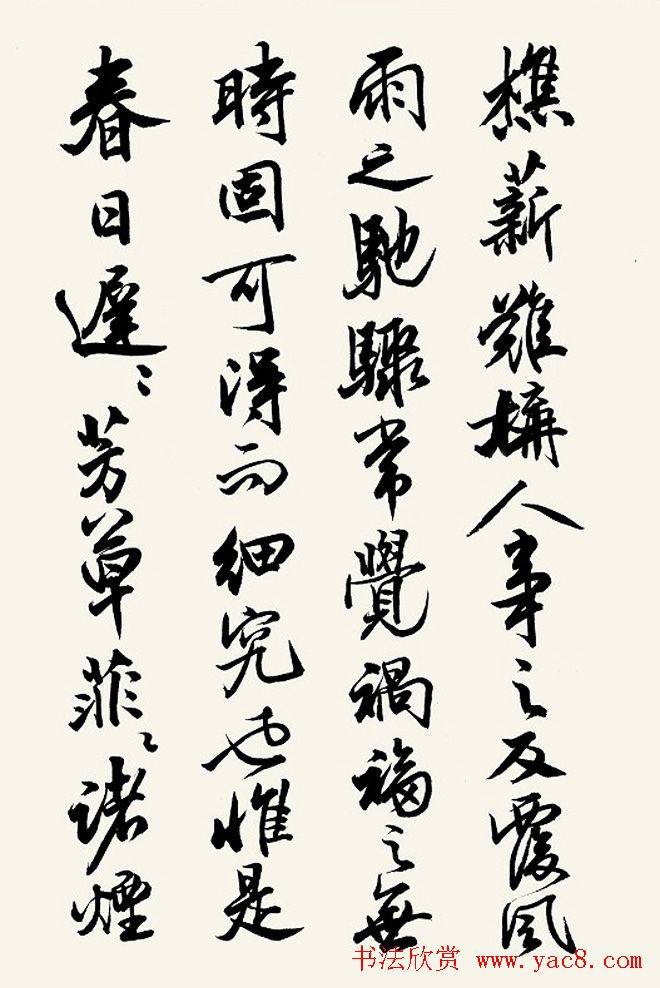 樵薪難構人事之反覆風
雨之馳驟常覺禍福之無
時固可得而細究也惟是
春日遲〻芳草菲〻諸煙
书法欣赏 www.yac8.com